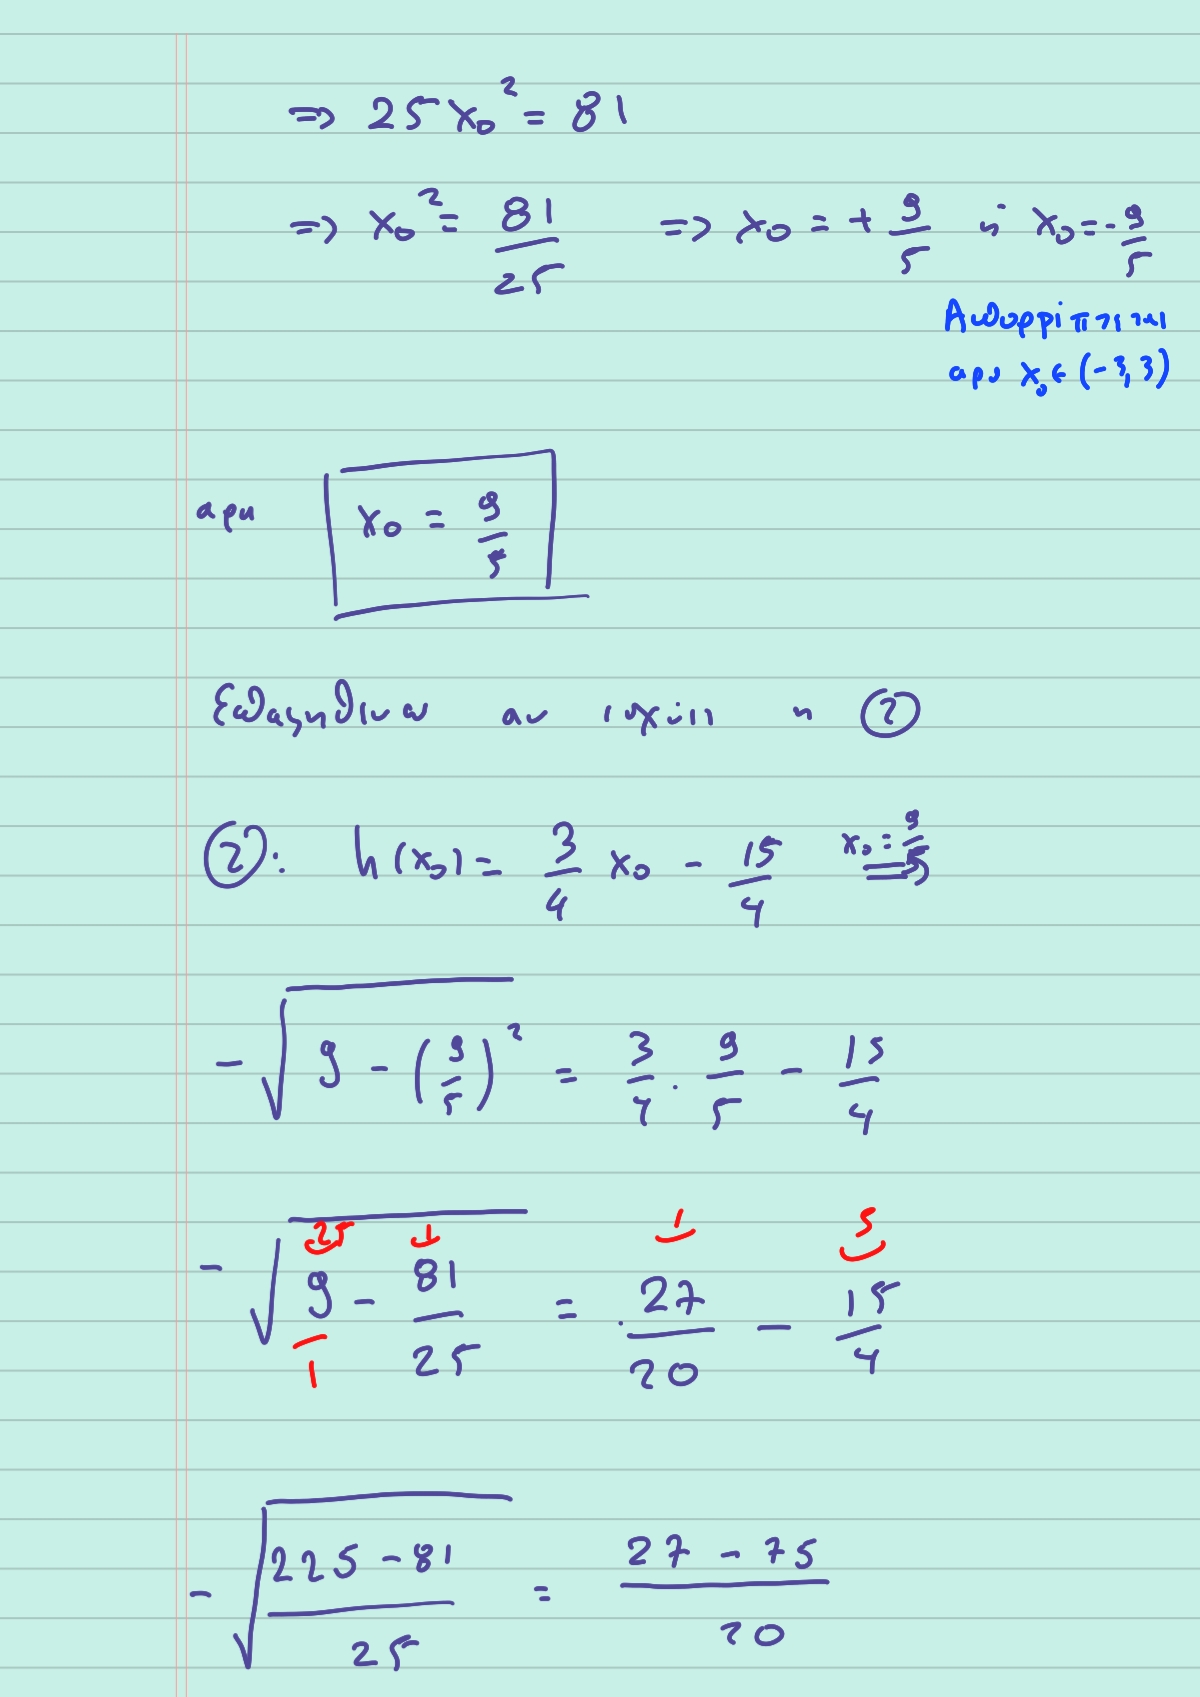 ⇒ 25x₀² = 81
⇒ x₀² = 81/25 ⇒ x₀ = + 9/5 ή x₀ = - 9/5
Απορρίπτεται
αφού x₀ ∈ (-3, 3)
άρα x₀ = 9/5
Επαληθεύω αν ισχύει η ②
②: h(x₀) = 3/4 x₀ - 15/4 x₀ = 9/5 ⇒
-√(9 - (9/5)²) = 3/4 · 9/5 - 15/4
25 1 1 5
-√(9/1 - 81/25) = 27/20 - 15/4
-√((225 - 81)/25) = (27 - 75)/20